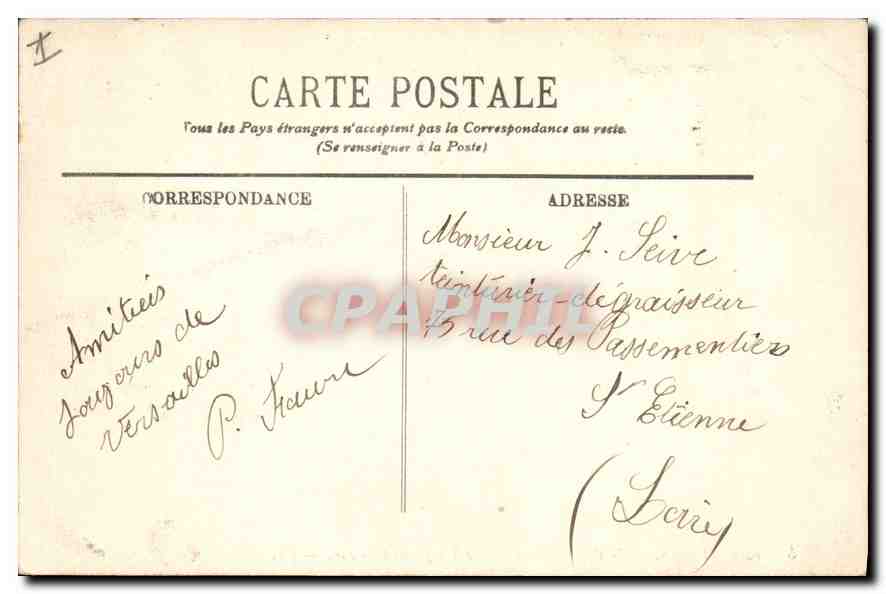 CARTE POSTALE
Tous les Pays étrangers n'acceptent pas la Correspondance au recto.
(Se renseigner à la Poste)
CORRESPONDANCE
Amitiés
toujours de
Versailles
P. Faure
ADRESSE
Monsieur J. Seive
teinturier-dégraisseur
75 rue des Passementiers
St Etienne
(Loire)
CPAPHIL